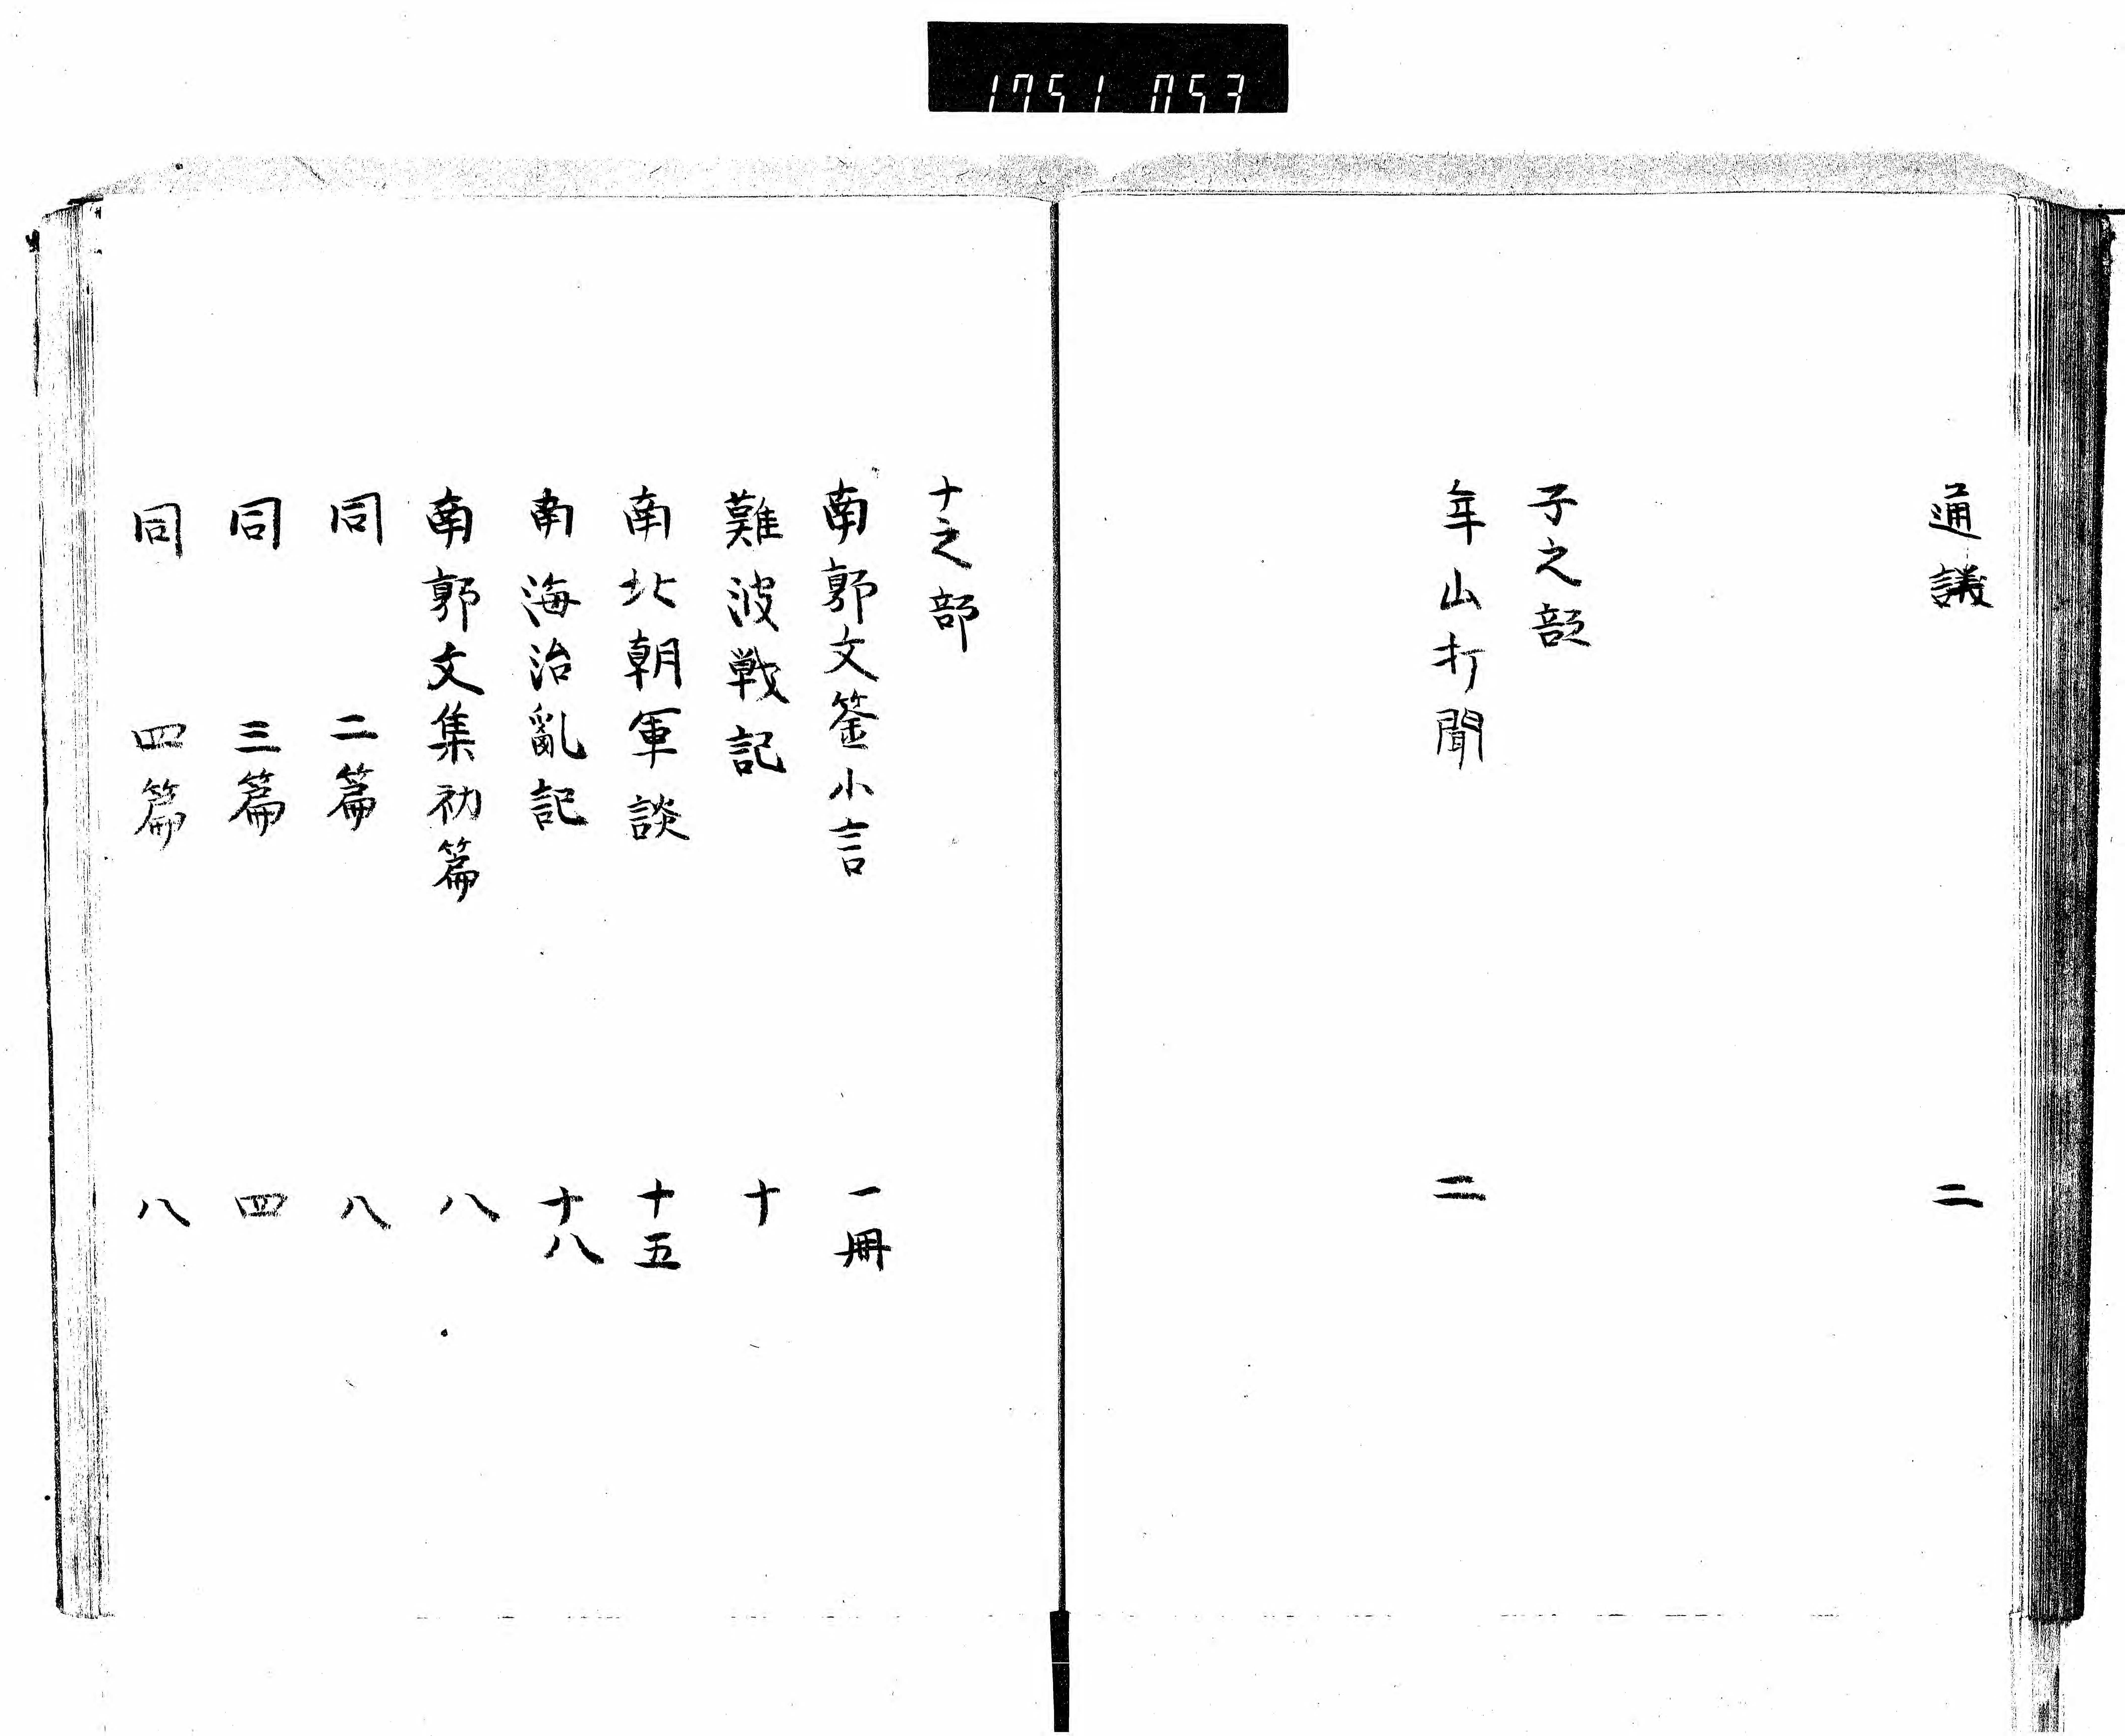 1751 053
通議 二
子之部
年山打聞 二
ナ之部
南郭文筌小言 一冊
難波戦記 十
南北朝軍談 十五
南海治亂記 十八
南郭文集初篇 八
同 二篇 八
同 三篇 四
同 四篇 八